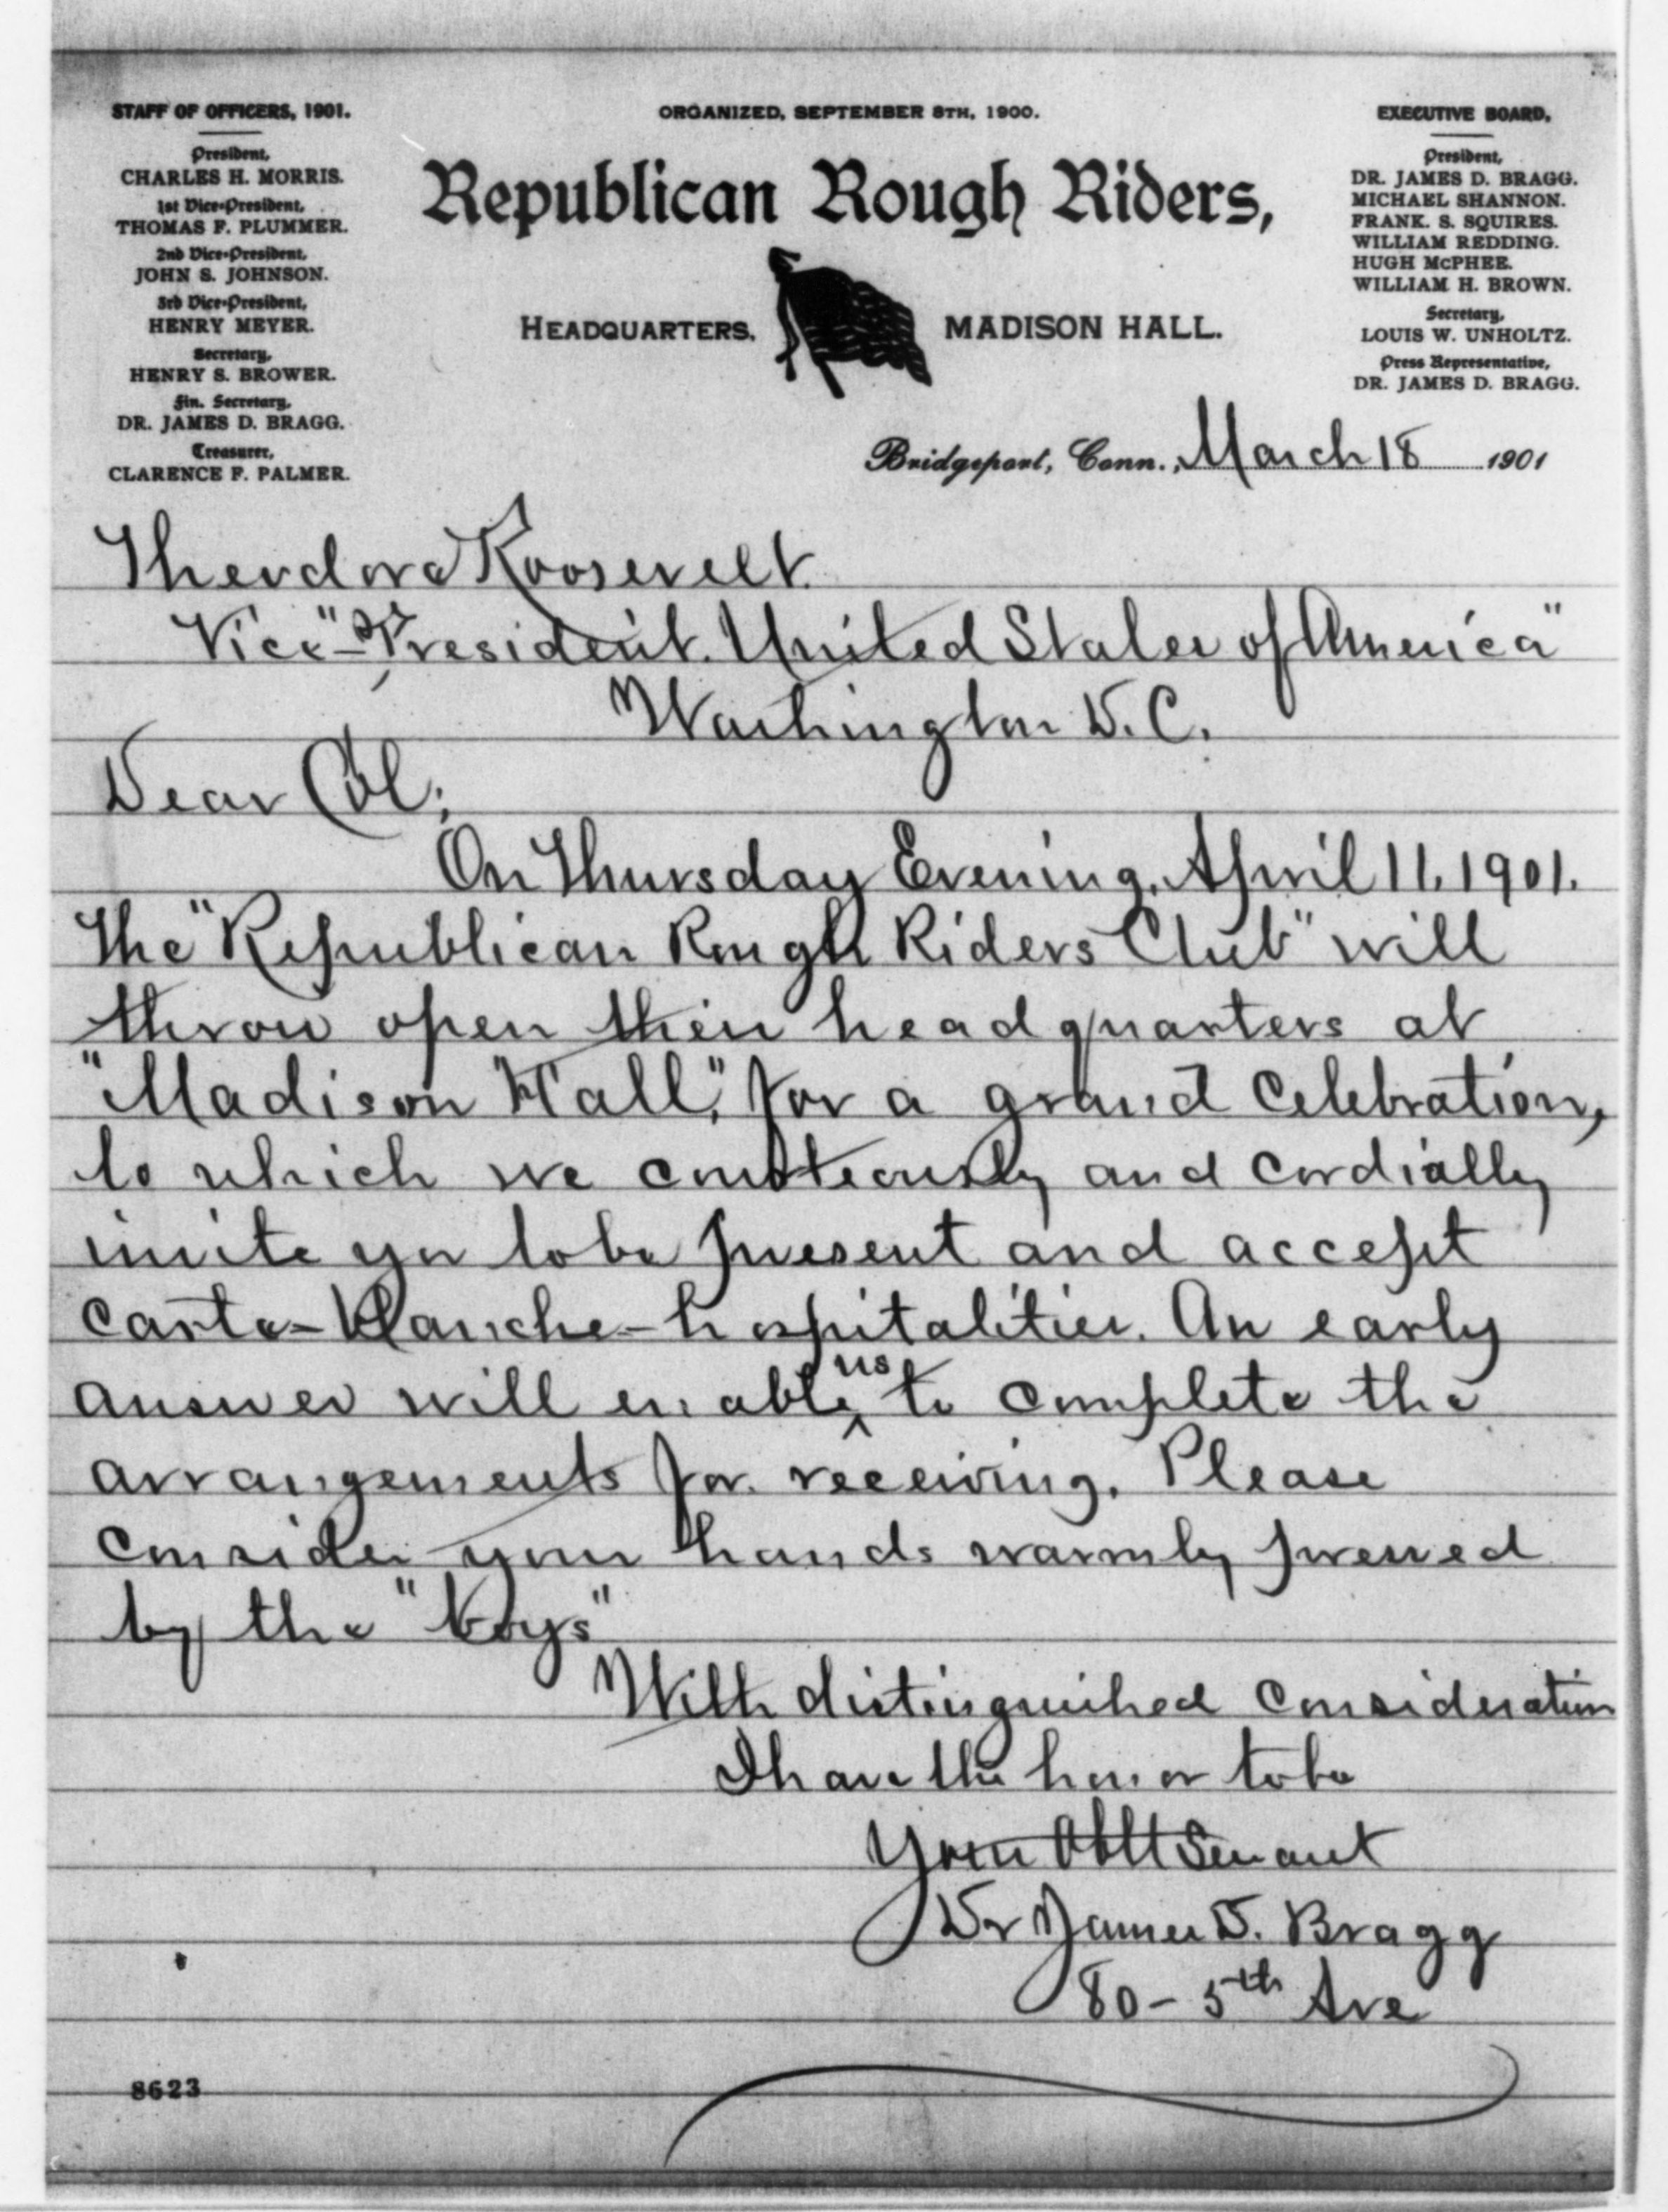 STAFF OF OFFICERS, 1901.
President,
CHARLES H. MORRIS.
1st Vice-President,
THOMAS F. PLUMMER.
2nd Vice-President,
JOHN S. JOHNSON.
3rd Vice-President,
HENRY MEYER.
Secretary,
HENRY S. BROWER.
Fin. Secretary,
DR. JAMES D. BRAGG.
Treasurer,
CLARENCE F. PALMER.
ORGANIZED, SEPTEMBER 8TH, 1900.
Republican Rough Riders,
HEADQUARTERS, MADISON HALL.
EXECUTIVE BOARD,
President,
DR. JAMES D. BRAGG.
MICHAEL SHANNON.
FRANK. S. SQUIRES.
WILLIAM REDDING.
HUGH McPHEE.
WILLIAM H. BROWN.
Secretary,
LOUIS W. UNHOLTZ.
Press Representative,
DR. JAMES D. BRAGG.
Bridgeport, Conn., March 18 1901
Theodore Roosevelt.
Vice"-President. United States of America"
Washington D.C.
Dear Col;
On Thursday Evening, April 11. 1901.
The "Republican Rough Riders Club" will
throw open their headquarters at
"Madison Hall," for a grand celebration,
to which we courteously and cordially
invite you to be present and accept
carte-blanche-hospitalities. An early
answer will enable us to complete the
arrangements for receiving. Please
consider your hands warmly pressed
by the "boys"
With distinguished consideration
I have the honor to be
Your Obt Servant
Dr James D. Bragg
80-5th Ave
8623